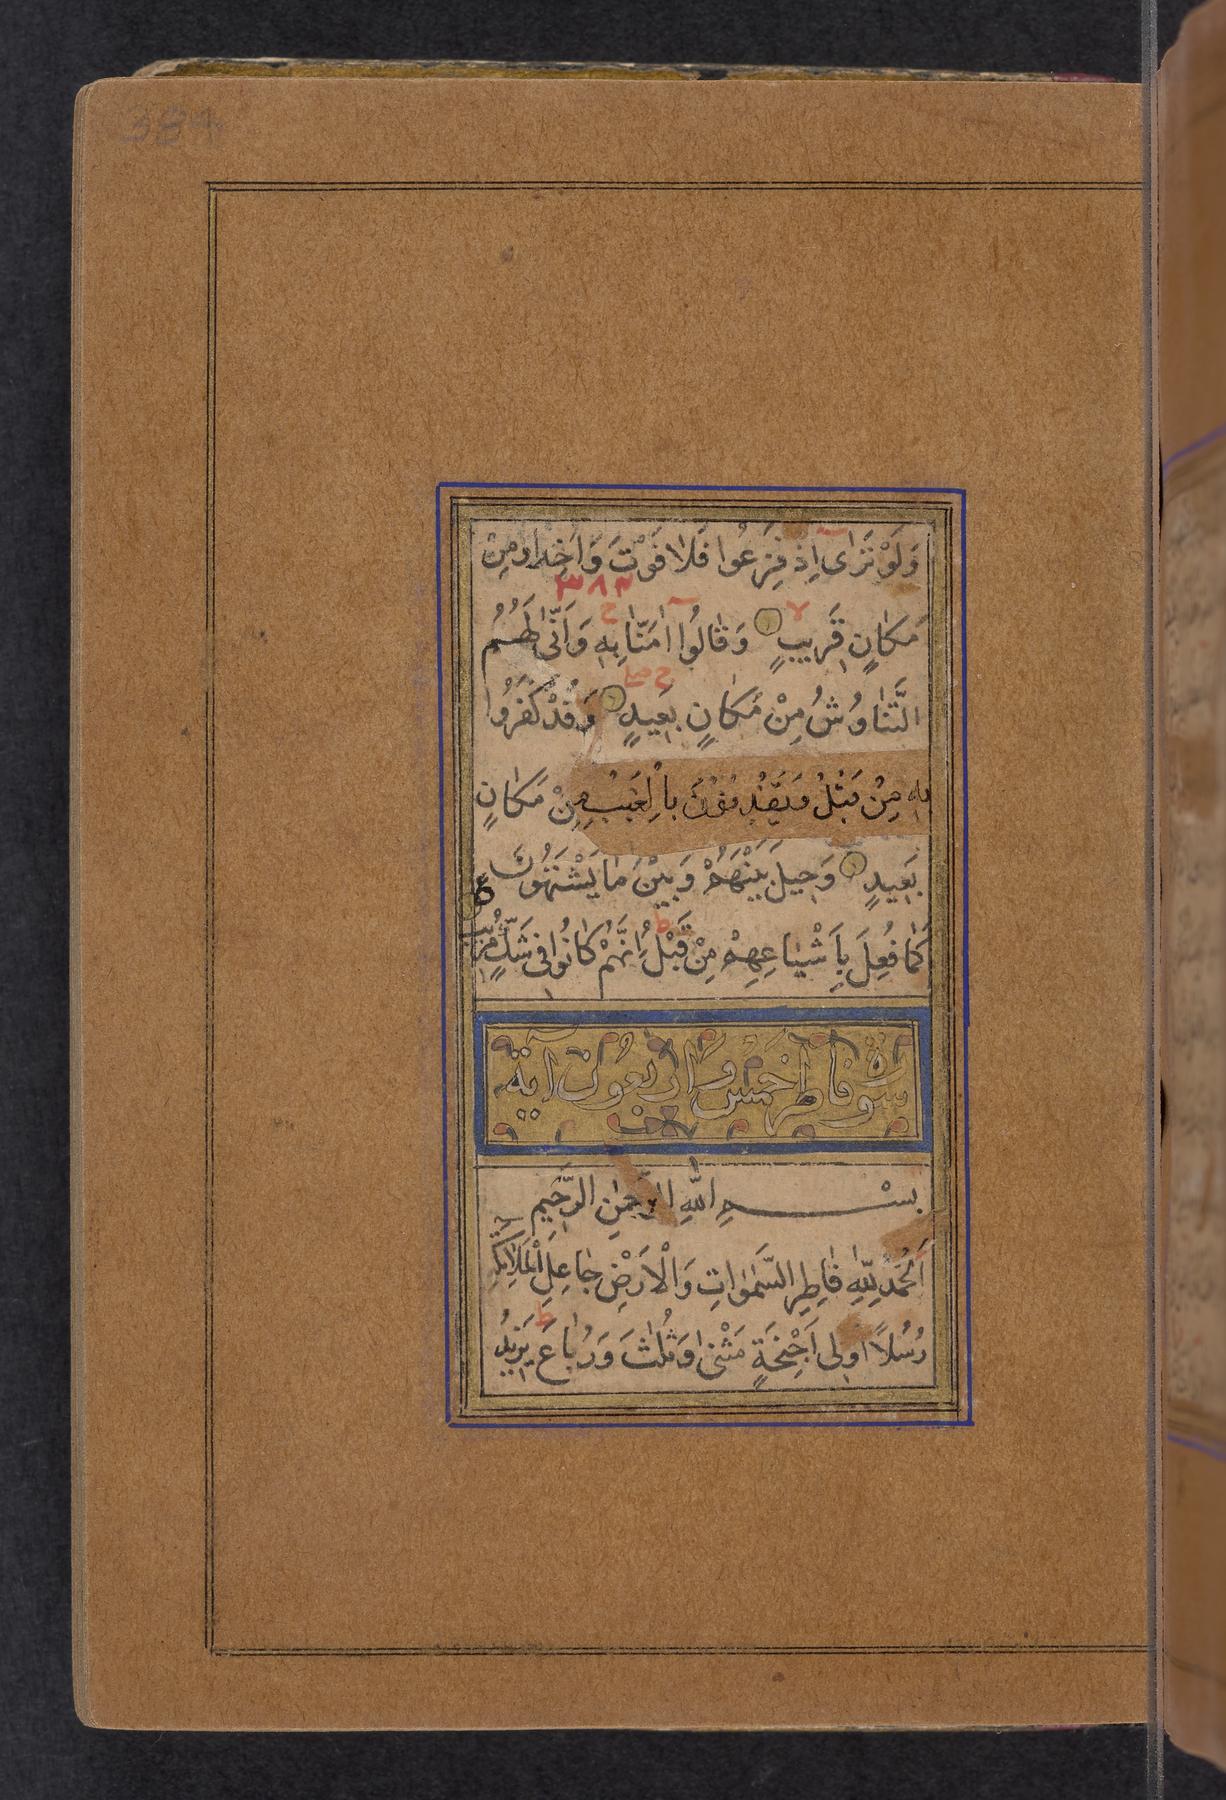 384
وَلَوْ تَرٰى اِذْ فَزِعُوا فَلَا فَوْتَ وَاُخِذُوا مِنْ
٣٨٣
مَكَانٍ قَرِيبٍ وَقَالُوا اٰمَنَّا بِهٖ وَاَنّٰى لَهُمُ
التَّنَاوُشُ مِنْ مَكَانٍ بَعِيدٍ وَقَدْ كَفَرُوا
بِهٖ مِنْ قَبْلُ وَيَقْذِفُوْنَ بِالْغَيْبِ مِنْ مَكَانٍ
بَعِيدٍ وَحِيلَ بَيْنَهُمْ وَبَيْنَ مَا يَشْتَهُونَ
كَمَا فُعِلَ بِاَشْيَاعِهِمْ مِنْ قَبْلُ اِنَّهُمْ كَانُوا فِى شَكٍّ مُرِيبٍ
سورة فاطر خمس واربعون آية
بِسْمِ اللّٰهِ الرَّحْمٰنِ الرَّحِيمِ
اَلْحَمْدُ لِلّٰهِ فَاطِرِ السَّمٰوَاتِ وَالْاَرْضِ جَاعِلِ الْمَلٰٓئِكَةِ
رُسُلًا اُولِى اَجْنِحَةٍ مَثْنٰى وَثُلٰثَ وَرُبَاعَ يَزِيدُ